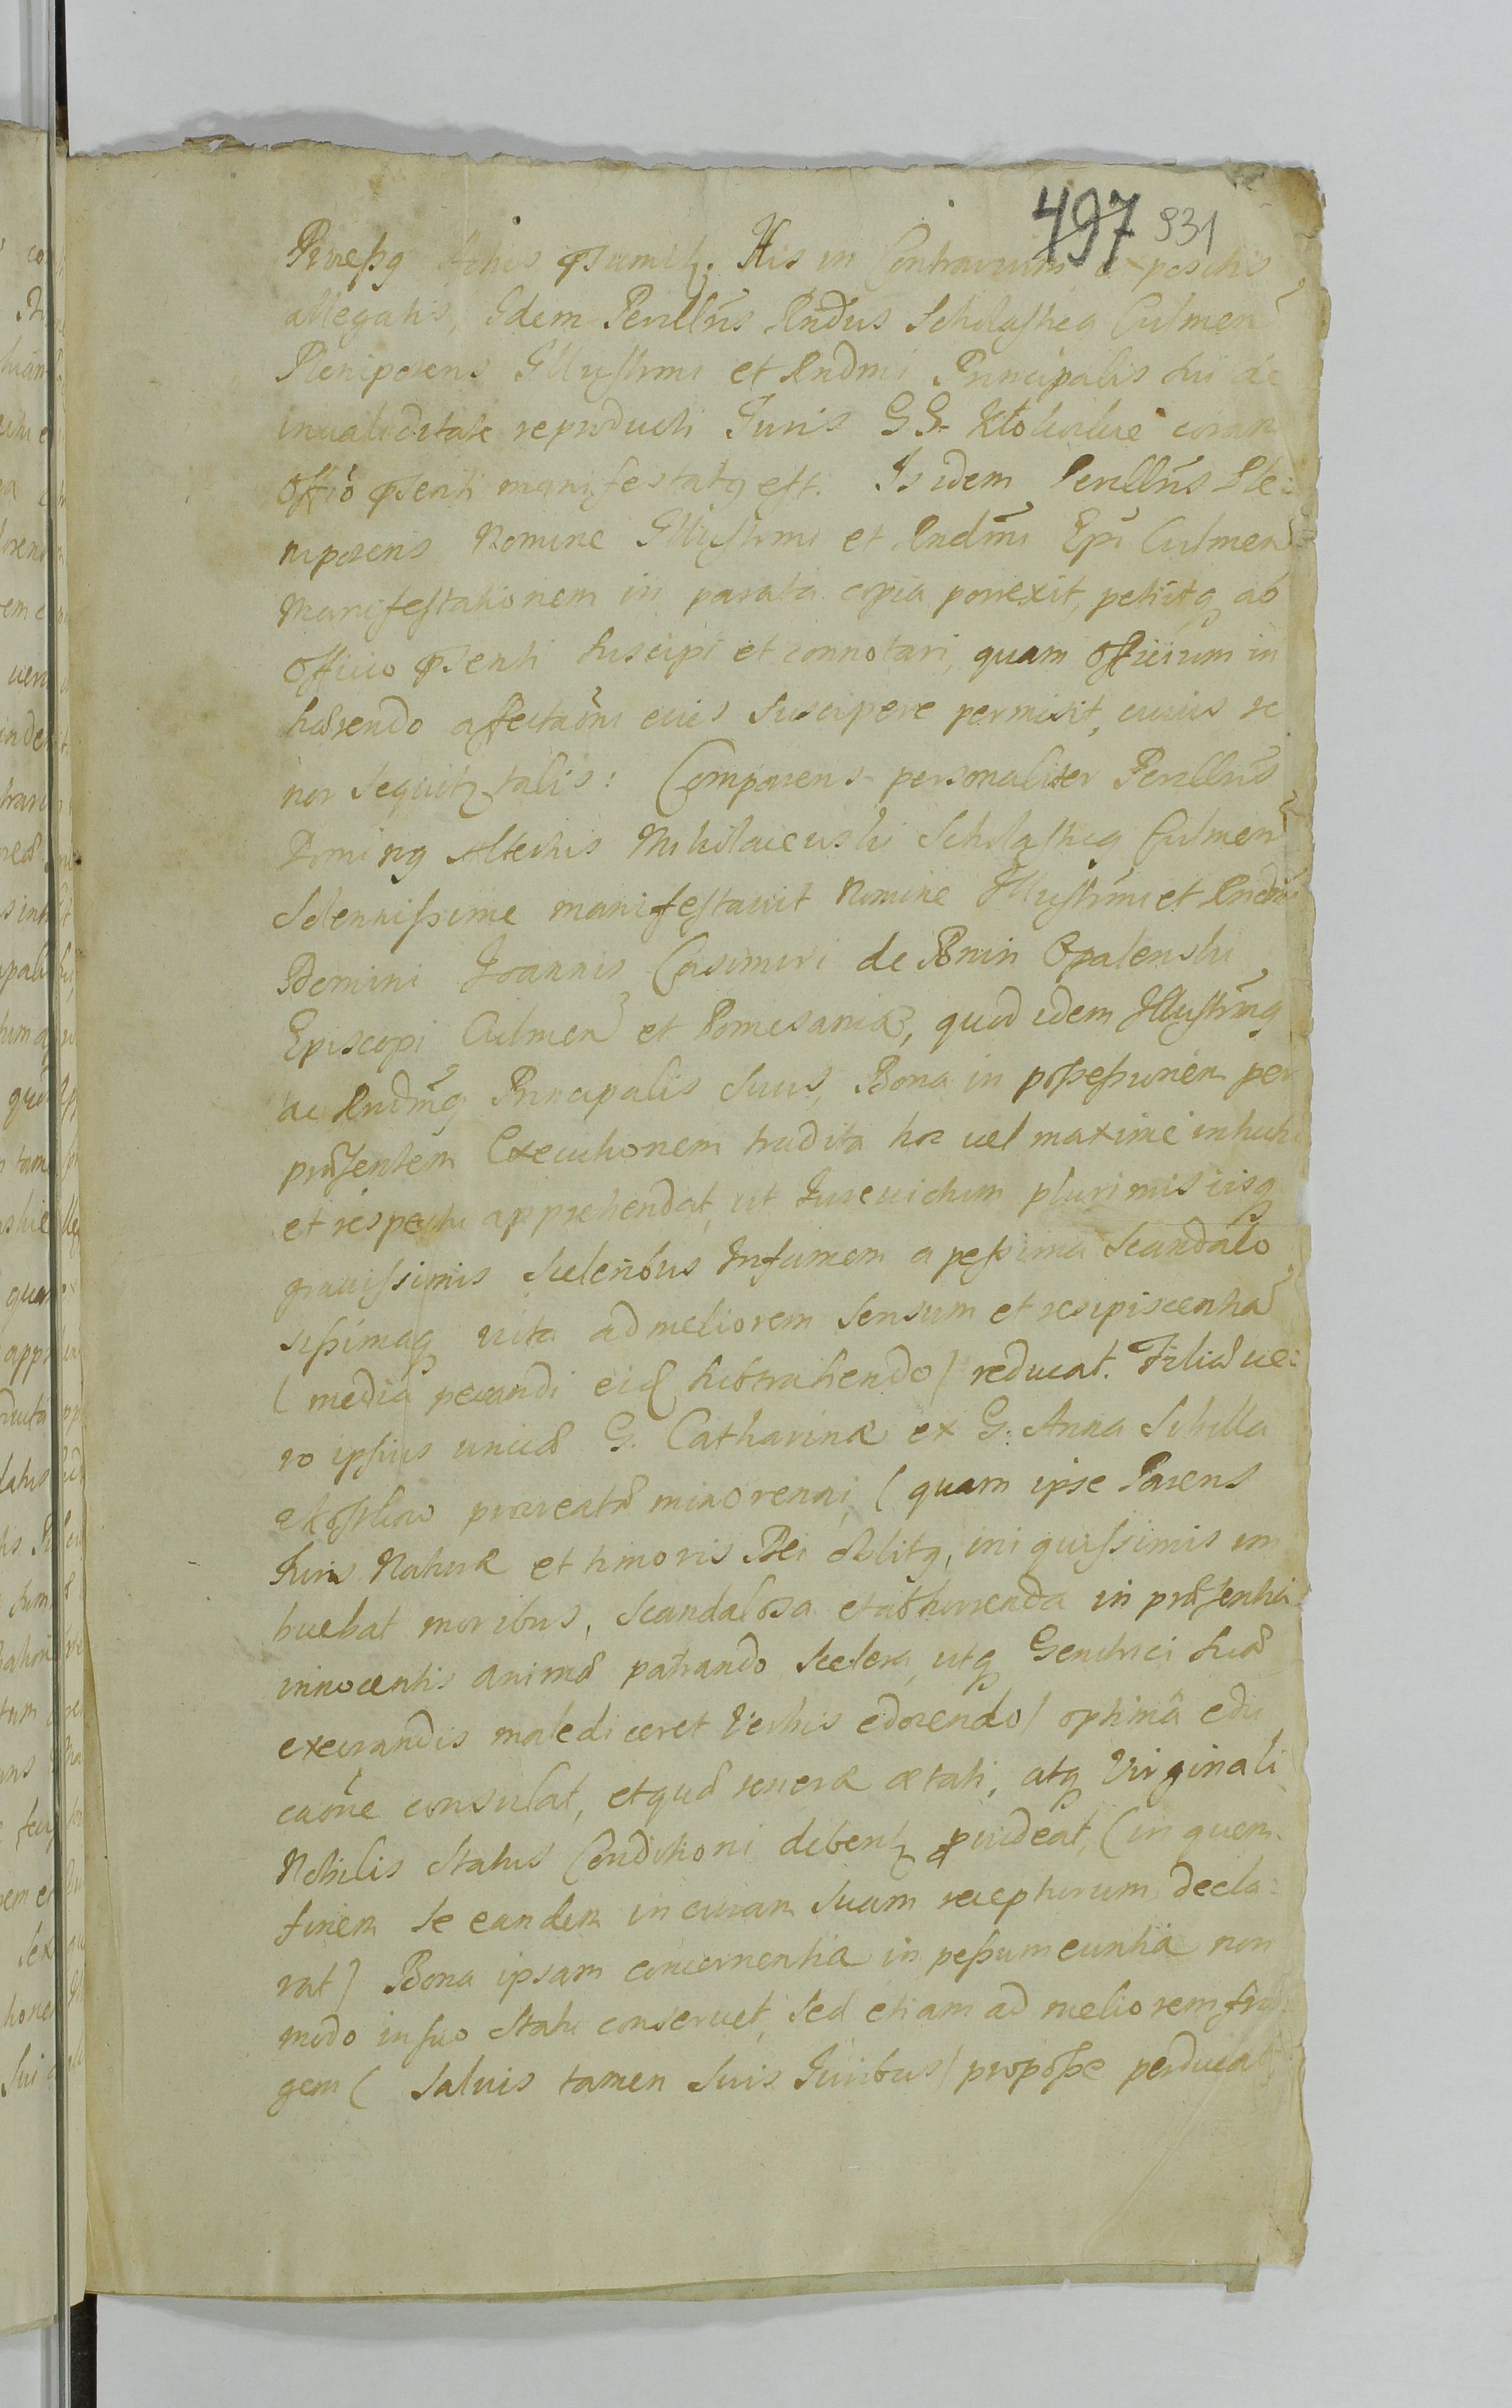 497 931
His in Contrarium expositis
allegatis, Idem Perillris Rndus Scholasticq Culmen
Plenipotens Illustrmi et Rndmi Principalis sui de
invaliditate reproducti Juris GG. coram
Offio pnti manifestatq est. Is idem Perillris Ple:
nipotens Nomine Illustrmi et Rndmi Epi Culmen
Manifestationem in parata copia porrexit, petiitq ab
Officio pnti suscipi et connotari, quam Officium in
hærendo affectaõni eius suscipere permisit, cuius te
nor sequitur talis: Comparens personaliter Perillris
Dominq Scholasticq Culmen
Solennissime manifestavit Nomine Illustrmi et Rndmi
Domini Joannis Casimiri de Bnin Opalenski
Episcopi Culmen et Pomesaniæ, quod idem Illustrmq
ac Rndmq Principalis Suus, Bona in possessionem per
præsentem Executionem tradita hoc vel maxime intuitu
et respectu apprehendat, ut Jurevictum plurimis iisq
gravissimis Sceleribus Infamem a pessima Scandalo
sissimaq vita ad meliorem Sensum et resipiscentiã
(media peccandi eid subtrahendo) reducat. Filiæ ve:
ro ipsius unicæ G. Catharinæ ex G. Anna Sibilla
procreatæ minorenni, (quam ipse Parens
Juris Naturæ et timoris Dei oblitq, iniquissimis im
buebat moribus, Scandalosa et abhorrenda in præsentia
innocentis animæ patrando Scelera, utq Genitrici suæ
execrandis malediceret Verbis edocendo) optimâ edu
caõne consulat, et quæ teneræ ætati, atq Virginali
Nobilis Status Conditioni debentur provideat, (in quem
finem Se eandem in curam Suam recepturum decla:
rat) Bona ipsam concernentia in pessum euntia non
modo in suo Statu conservet, Sed etiam ad meliorem fru
gem (Salvis tamen Suis Juribus) pro posse perducat